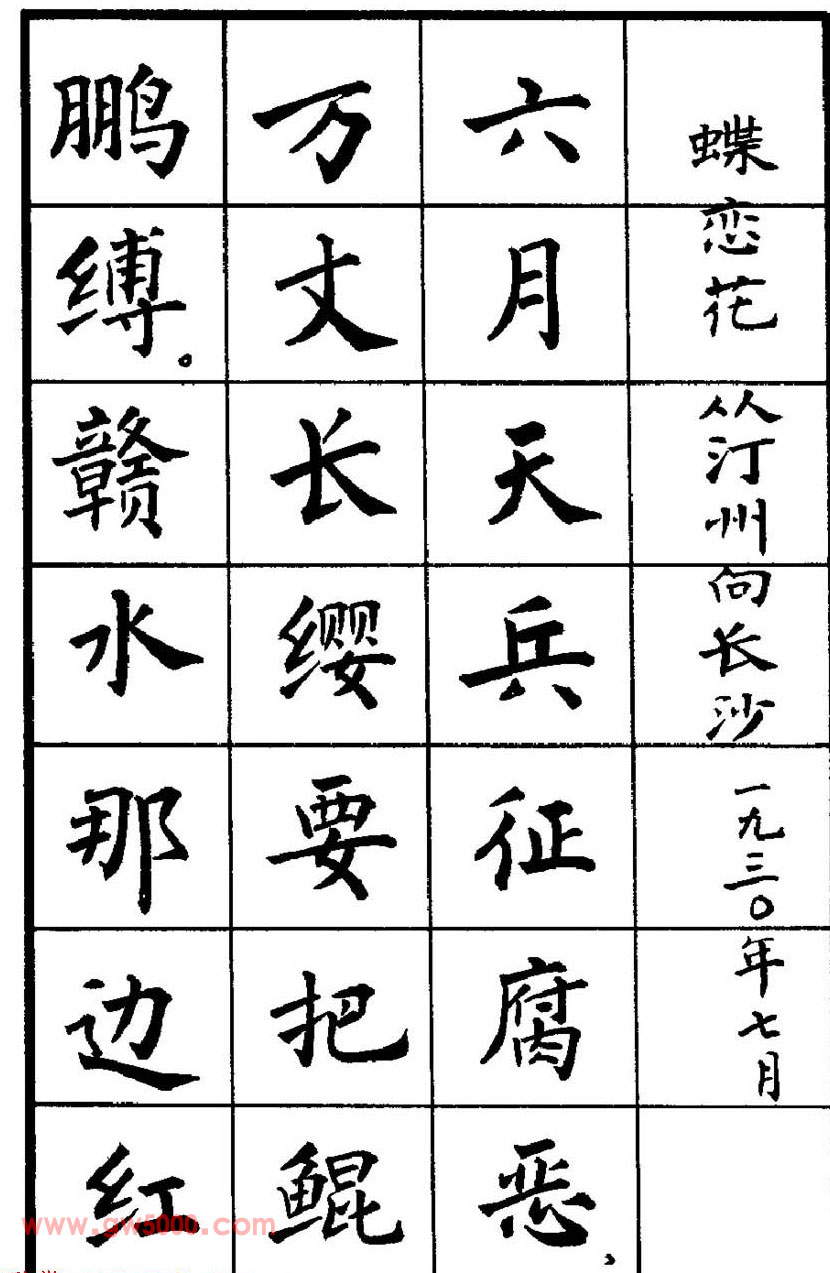 蝶恋花 从汀州向长沙 一九三〇年七月
六月天兵征腐恶、
万丈长缨要把鲲
鹏缚。赣水那边红
www.gw5000.com